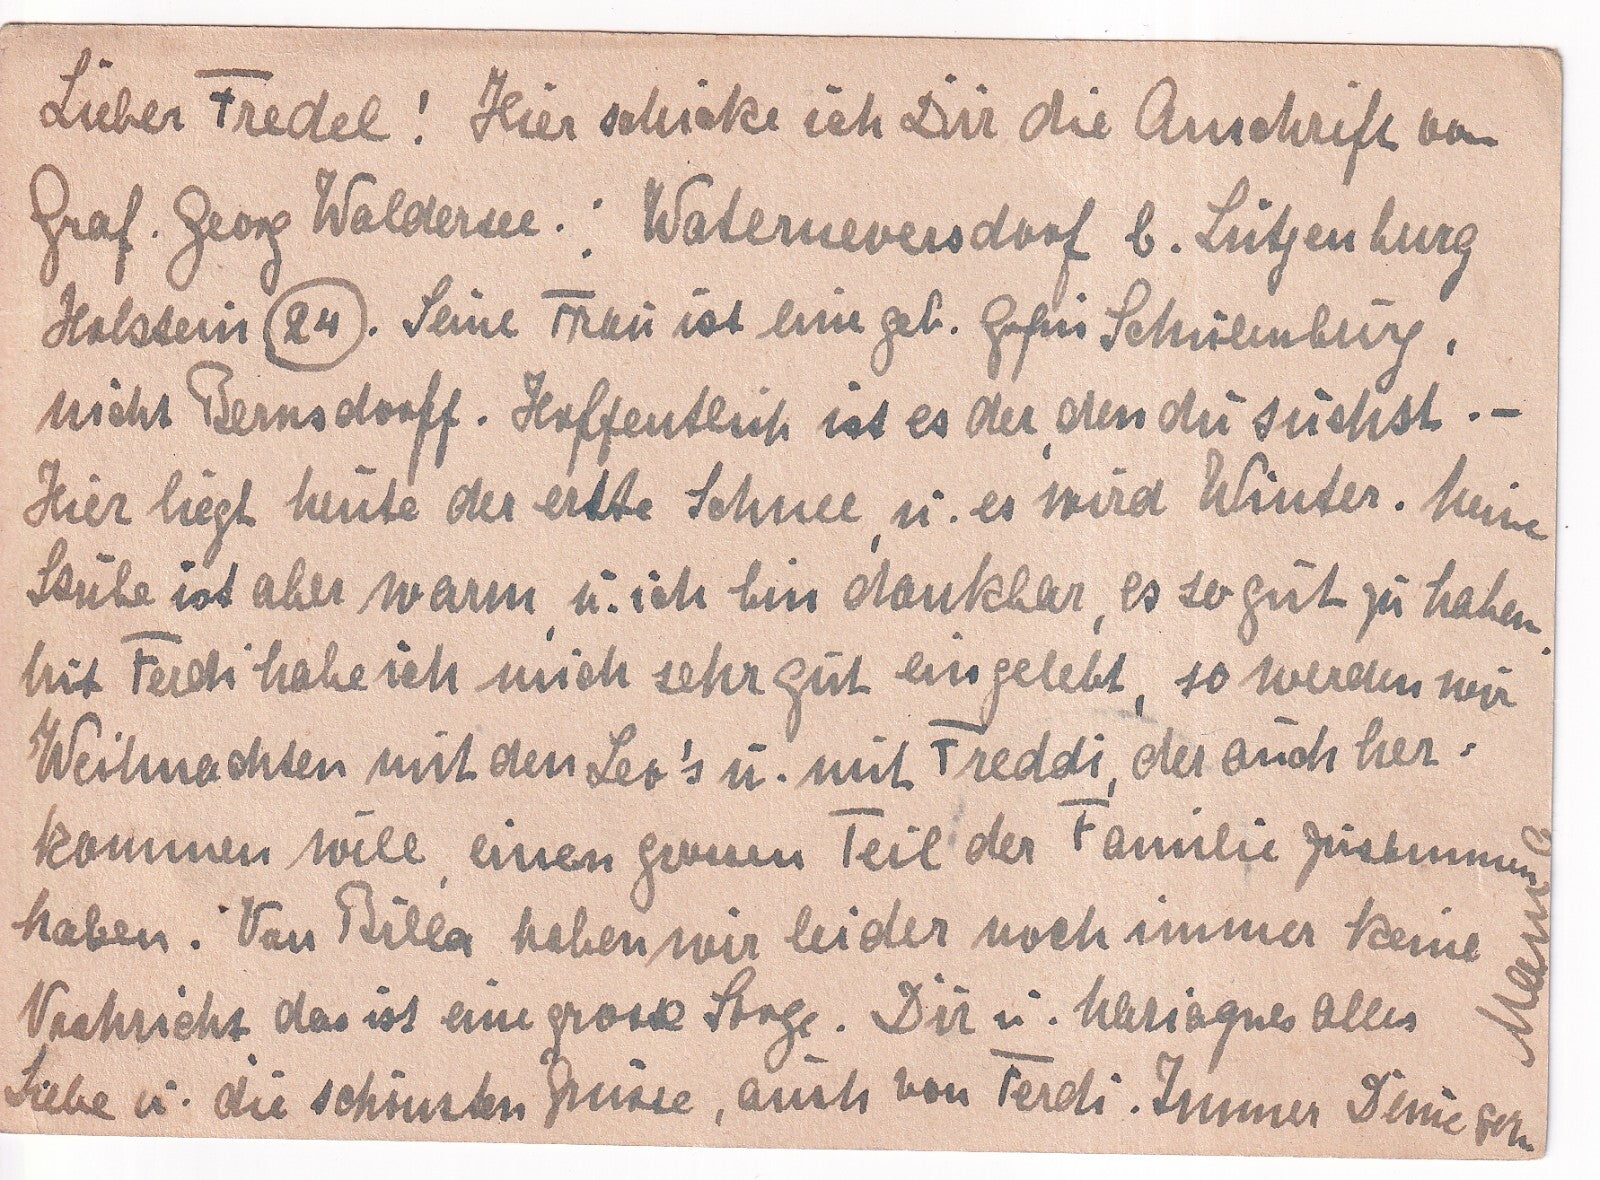 Lieber Fredel! Hier schicke ich Dir die Anschrift von
Graf. Georg Waldersee.: Waterneversdorf b. Lütjenburg
Holstein (24). Seine Frau ist eine geb. Gräfin Schulenburg,
nicht Bernsdorff. Hoffentlich ist es der, den du suchst. –
Hier liegt heute der erste Schnee, u. es wird Winter. Meine
Stube ist aber warm, u. ich bin dankbar, es so gut zu haben.
Mit Ferdi habe ich mich sehr gut eingelebt, so werden wir
Weihnachten mit den Leo's u. mit Freddi, der auch her-
kommen will, einen grossen Teil der Familie zusammen
haben. Von Billa haben wir leider noch immer keine
Nachricht das ist eine grosse Sorge. Dir u. Mariagnes alles
Liebe u. die schönsten Grüsse, auch von Ferdi. Immer Deine